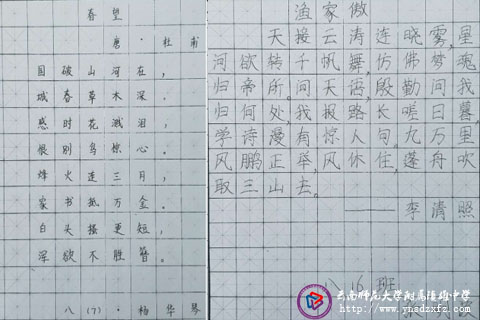 春望
唐·杜甫
国破山河在，
城春草木深。
感时花溅泪，
恨别鸟惊心。
烽火连三月，
家书抵万金。
白头搔更短，
浑欲不胜簪。
八（7）·杨华琴
渔家傲
天接云涛连晓雾，星
河欲转千帆舞，仿佛梦魂
归帝所。问天语，殷勤问我
归何处，我报路长嗟日暮，
学诗漫有惊人句。九万里
风鹏正举，风休住，蓬舟吹
取三山去。
——李清照
八16班
云南师范大学附属官渡中学
www.ynsdzxfz.com